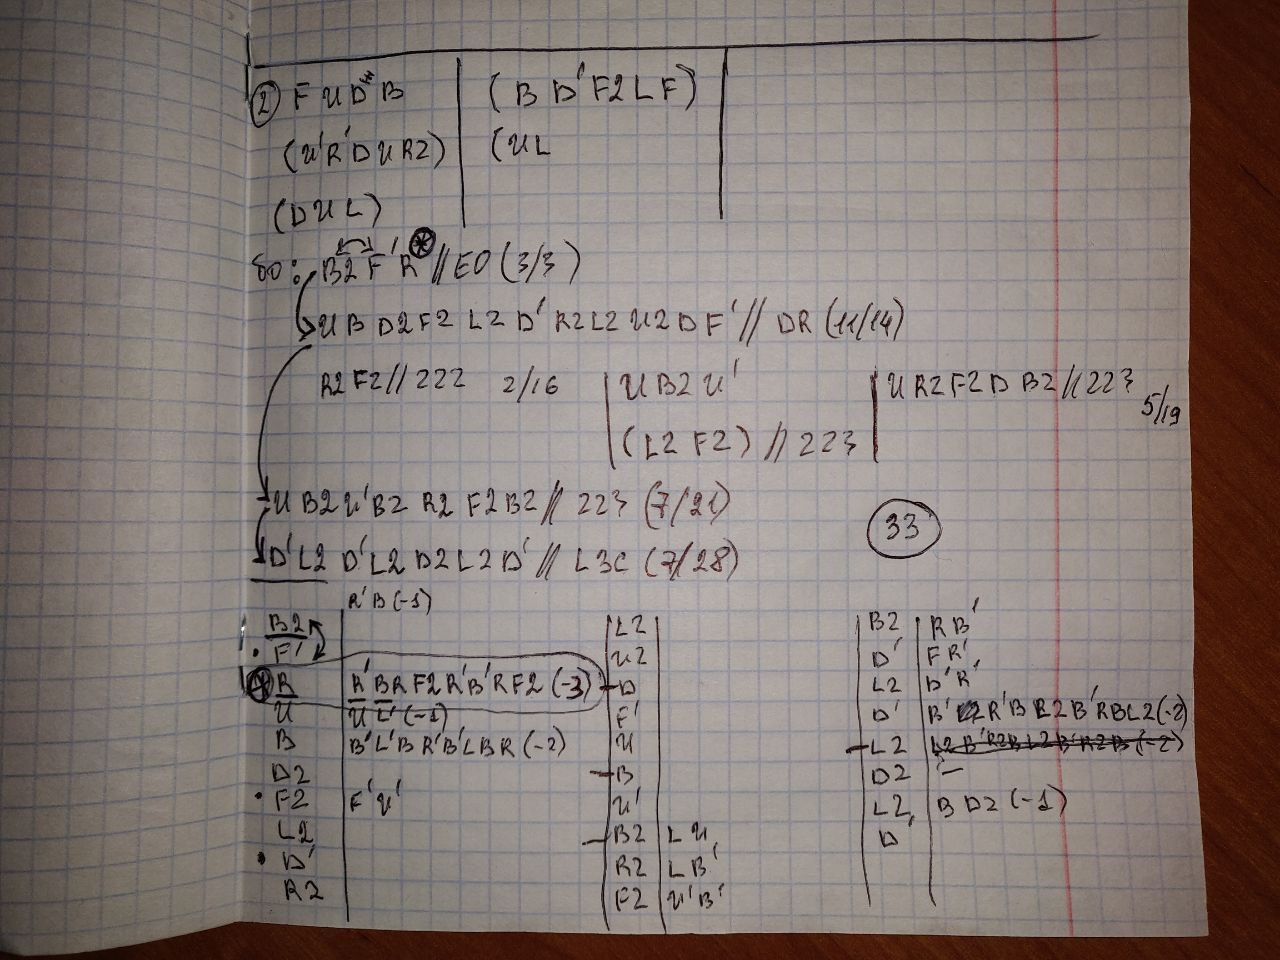 ② F U D B
(U'R'D U R2)
(D U L)
(B D'F2 L F)
(U L
B2 F'R * // EO (3/3)
U B D2 F2 L2 D' R2 L2 U2 D F' // DR (11/14)
R2 F2 // 222 2/16
U B2 U'
(L2 F2) // 223
U R2 F2 D B2 // 223
5/19
U B2 U'B2 R2 F2 B2 // 223 (7/21)
33
D'L2 D'L2 D2 L2 D' // L3C (7/28)
R'B (-1)
B2
F'
R R'BRF2R'B'RF2 (-3)
U U L' (-1)
B B'L'BR'B'LBR (-2)
D2
F2 F'U'
L2
D'
R2
L2
U2
D
F'
U
B
U'
B2 L U
R2 L B'
F2 U'B'
B2 R B'
D' F R'
L2 D'R'
D' B'L2R'BL2B'RBL2 (-2)
L2 L2B'R2BL2B'R2B (-2)
D2 –
L2 B D2 (-1)
D'